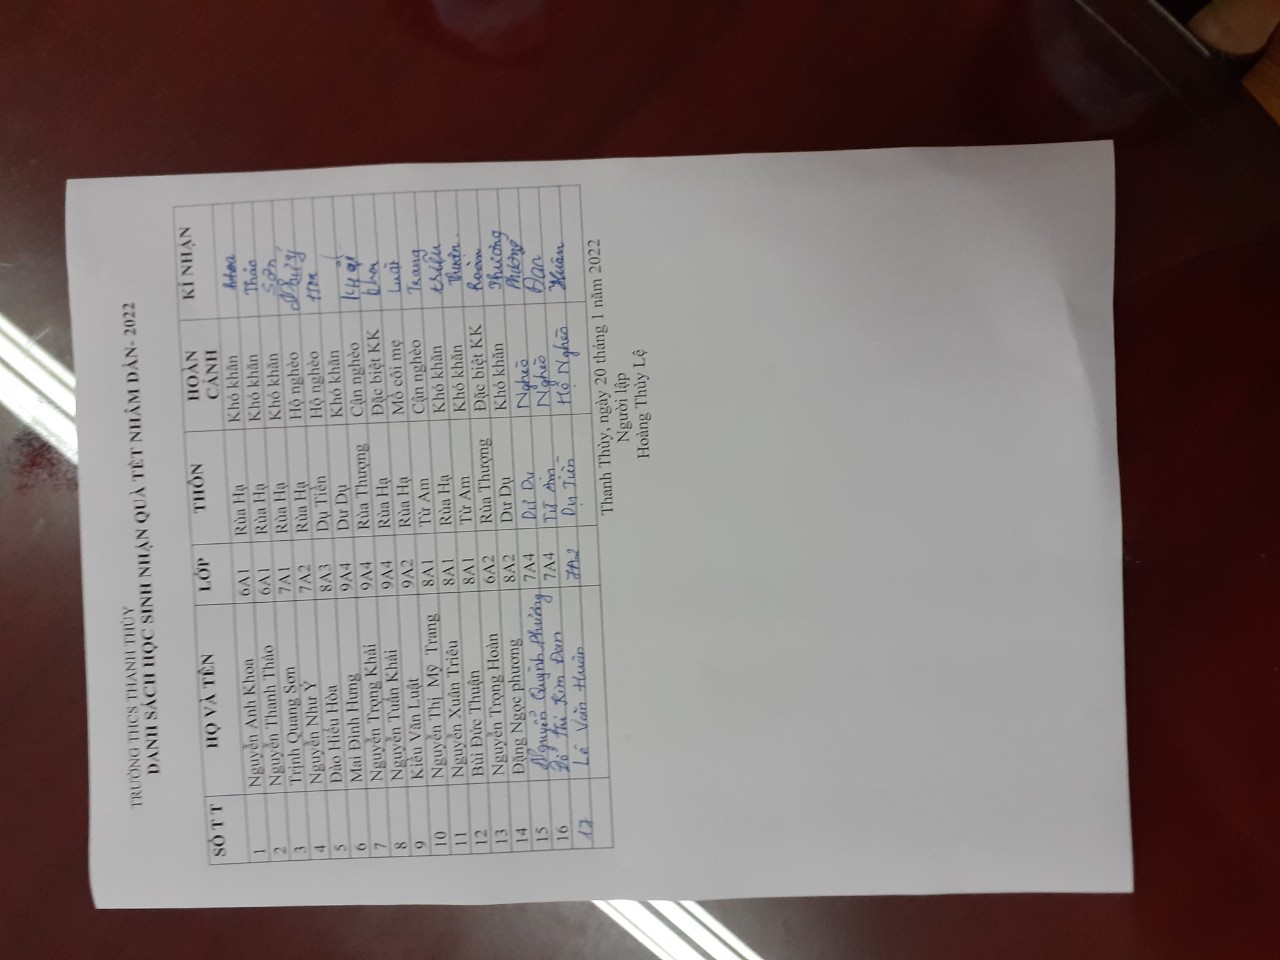 TRƯỜNG THCS THANH THÙY
DANH SÁCH HỌC SINH NHẬN QUÀ TẾT NHÂM DẦN- 2022
SỐ T T HỌ VÀ TÊN LỚP THÔN HOÀN CẢNH KÍ NHẬN
1 Nguyễn Anh Khoa 6A1 Rùa Hạ Khó khăn khoa
2 Nguyễn Thanh Thảo 6A1 Rùa Hạ Khó khăn Thảo
3 Trịnh Quang Sơn 7A1 Rùa Hạ Khó khăn Sơn
4 Nguyễn Như Ý 7A2 Rùa Hạ Hộ nghèo
5 Đào Hiếu Hòa 8A3 Dụ Tiền Hộ nghèo
6 Mai Đình Hưng 9A4 Dư Dụ Khó khăn
7 Nguyễn Trọng Khải 9A4 Rùa Thượng Cận nghèo
8 Nguyễn Tuấn Khải 9A4 Rùa Hạ Đặc biệt KK
9 Kiều Văn Luật 9A2 Rùa Hạ Mồ côi mẹ Luật
10 Nguyễn Thị Mỹ Trang 8A1 Từ Am Cận nghèo Trang
11 Nguyễn Xuân Triệu 8A1 Rùa Hạ Khó khăn triệu
12 Bùi Đức Thuận 8A1 Từ Am Khó khăn Thuận
13 Nguyễn Trọng Hoàn 6A2 Rùa Thượng Đặc biệt KK Hoàn
14 Đặng Ngọc phương 8A2 Dư Dụ Khó khăn Phương
15 Nguyễn Quỳnh Phương 7A4 Dư Dụ Nghèo Phương
16 Đỗ Thị Kim Đan 7A4 Từ Am Nghèo Đan
17 Lê Văn Huân 7A2 Dụ Tiền Hộ Nghèo Huân
Thanh Thùy, ngày 20 tháng 1 năm 2022
Người lập
Hoàng Thúy Lệ